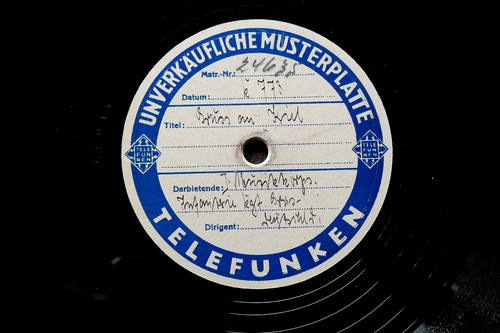 UNVERKÄUFLICHE MUSTERPLATTE
Matr.-Nr.: 24638
Datum:
Titel: Gruss an Kiel
TELE
FUN
KEN
TELE
FUN
KEN
Darbietende: I Musikkorps.
Infanterie Rgt.
Dirigent:
TELEFUNKEN